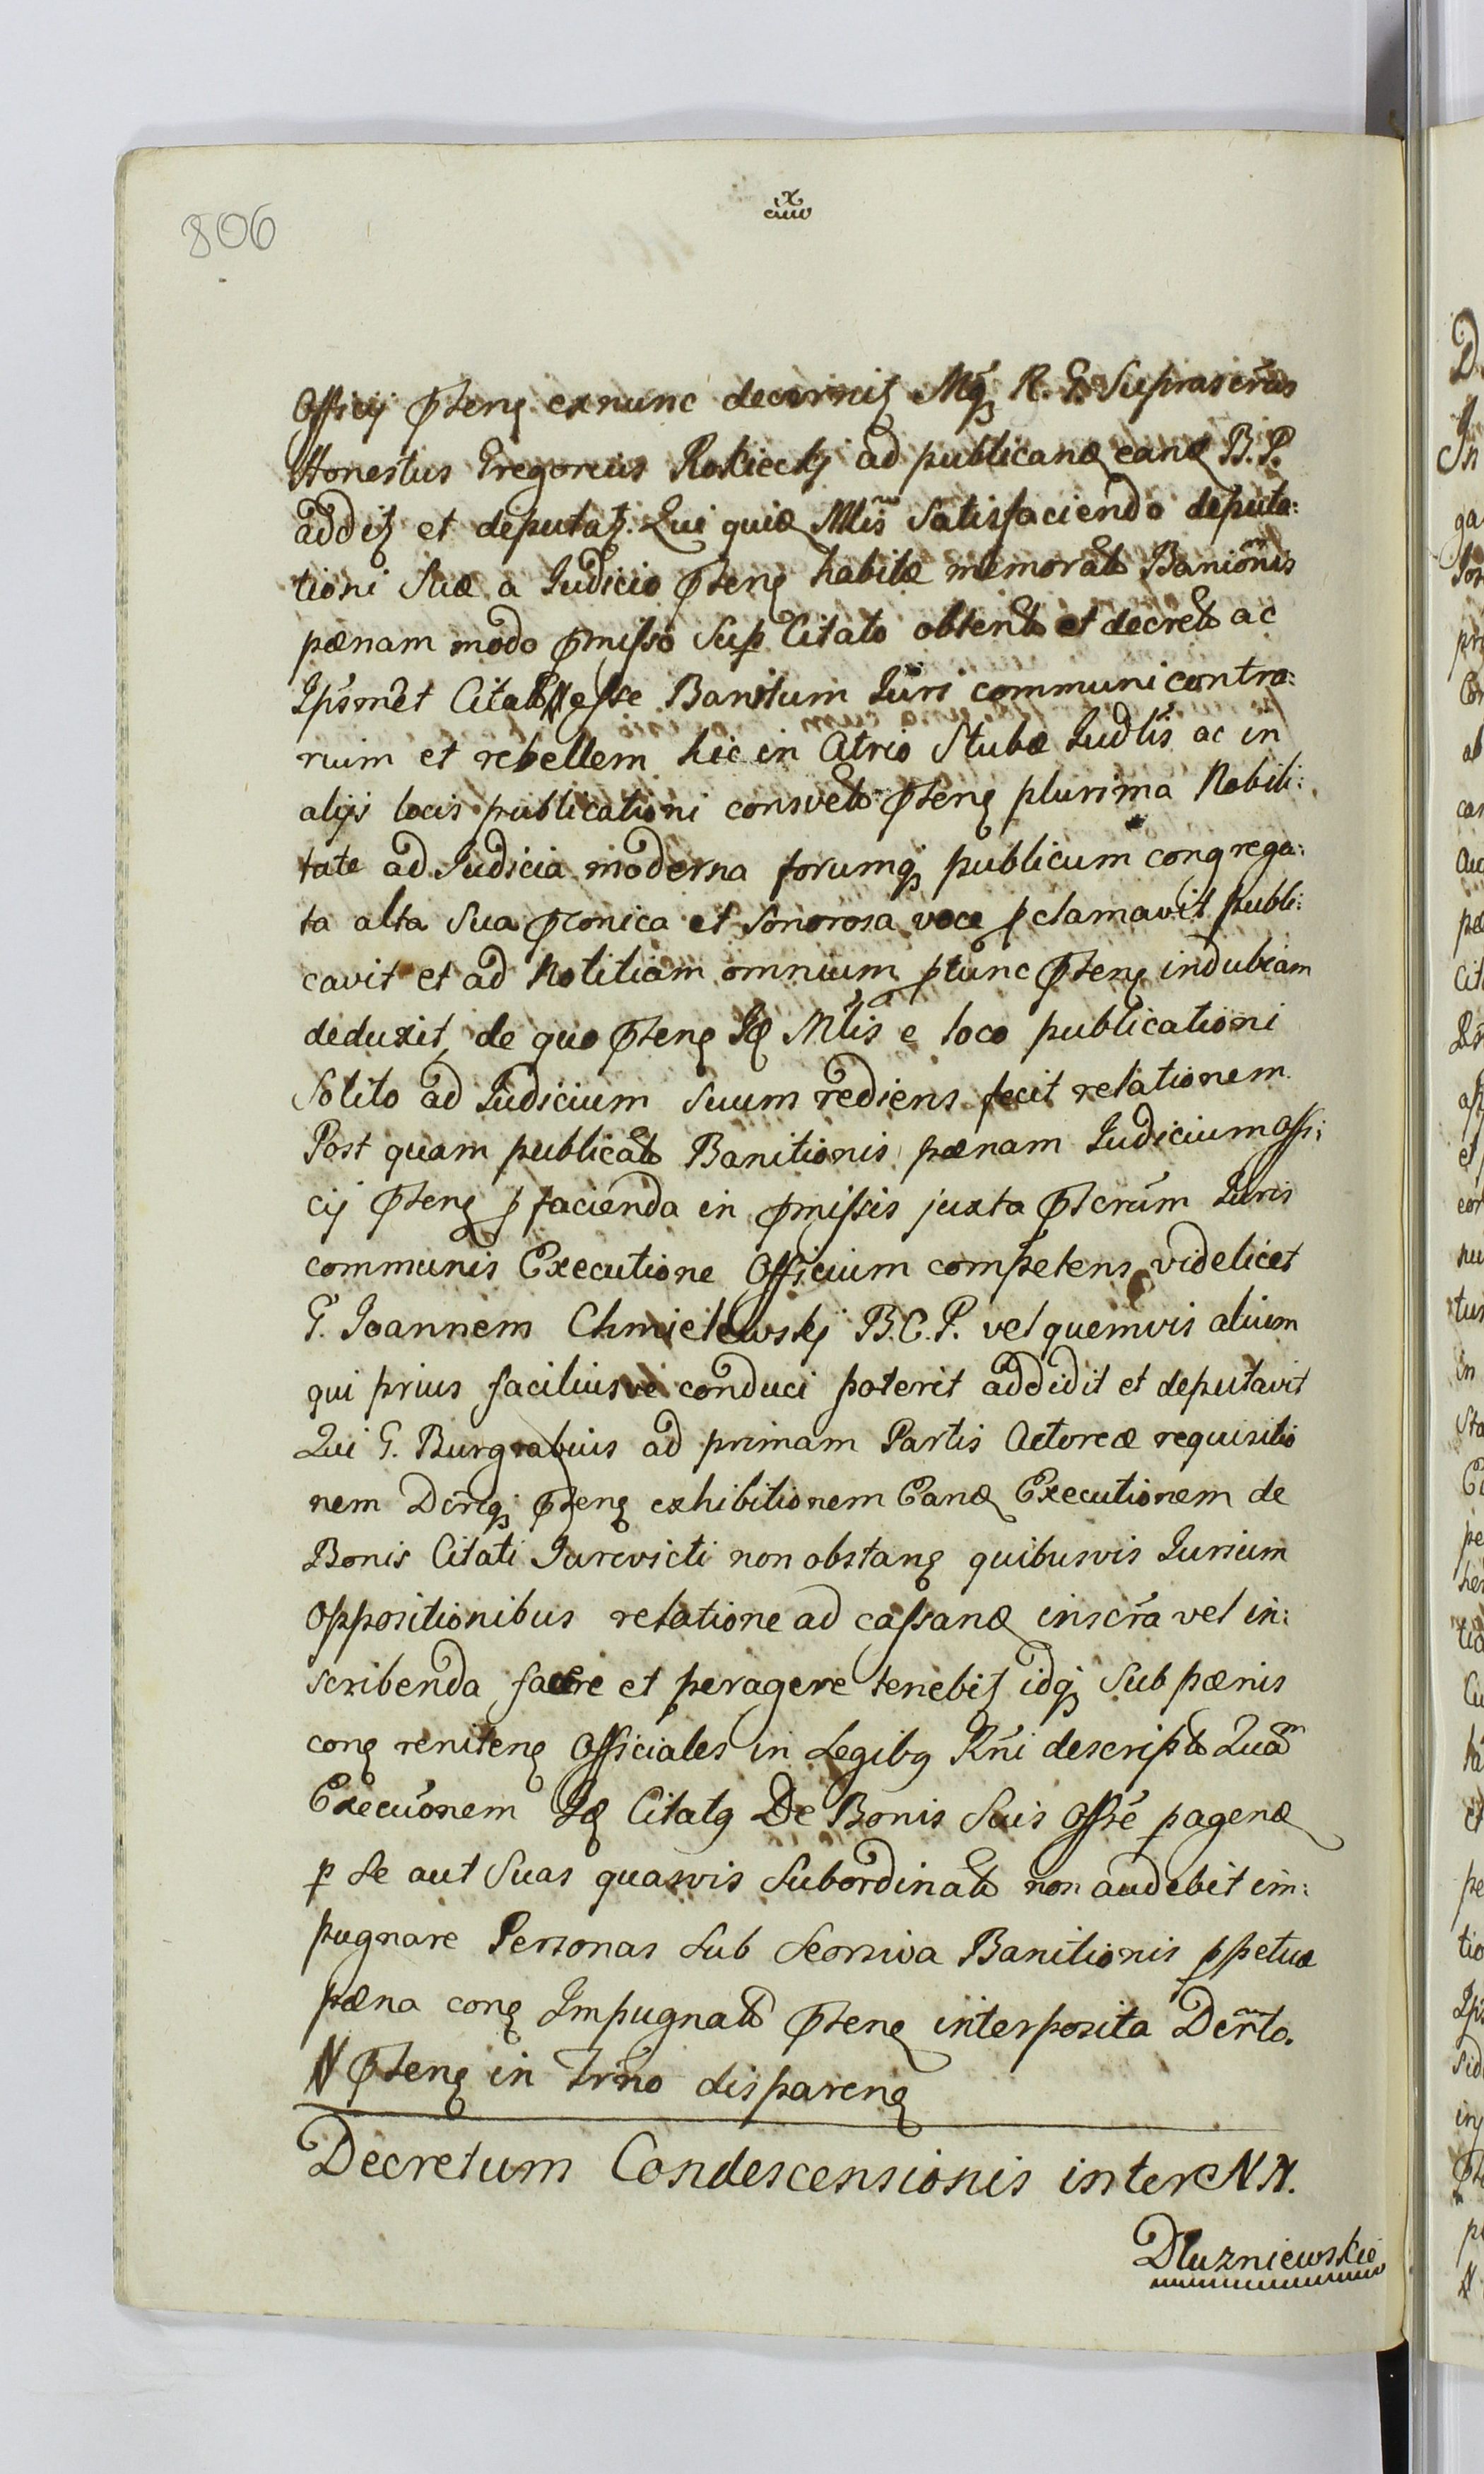 806
Officij pñteng exnunc decernitz Mqʒ R. G. Suprascr̃as
Honestus Gregorius Rokiecki ad publicand eand B. P.
additz et deputatz. Qui quid Mlis̃ Satisfaciendo deputa:
tioni Suæ a Judicio pñteng habitæ memorat Baniõnis
pænam modo p̃misso Sup Citato obtent et decret ac
Ips̃met Citat esse Banitum Juri communi contra:
rium et rebellem hic in Atrio Stubæ Judlĩs ac in
alijs locis publicationi consvet pñteng plurima Nobili:
tate ad Judicia moderna forumqʒ publicum congrega:
ta alta Sua p̃conica et Sonorosa voce pclamavit publi:
cavit et ad Notitiam omnium ptunc pñteng indubiam
deduxit, de quo pñteng Id Mlis̃ e loco publicationi
Solito ad Judicium Suum rediens fecit relationem
Post quam publicat Banitionis pænam Judicium Offi:
cij pñteng p facienda in p̃missis juxta p̃scrũm Juris
communis Executione Officium competens videlicet
G. Joannem Chmielewskj B. C. P. vel quemvis alium
qui prius faciliusve conduci poterit addidit et deputavit
Qui G. Burgrabius ad primam Partis Actoreæ requisitio
nem Dẽrtiqʒ pñteng exhibitionem Eand Executionem de
Bonis Citati Jurevicti non obstang quibusvis Jurium
oppositionibus relatione ad cassand inscr̃a vel in:
scribenda facere et peragere tenebitz idqʒ Sub pænis
cong reniteng Officiales in Legibg Rñi descript Quã
Execuõnem Id Citatg De Bonis Suis Offsẽ pagend
p Se aut Suas quasvis Subordinat non audebit im:
pugnare Personas Sub Seorsiva Banitionis ppetuæ
pæna cong Impugnat pñteng interposita Dẽrto.
N pñteng in Trño dispareng
Decretum Condescensionis inter NN.
Dluzniewskie